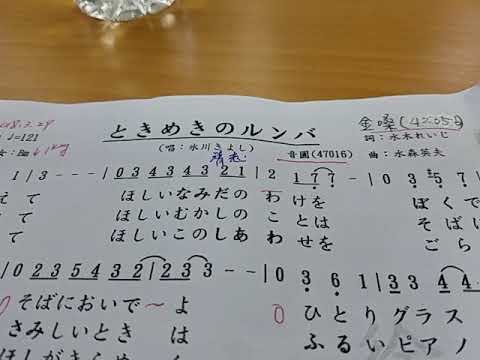 ときめきのルンバ
金嗓(42051)
♩=121
(唱:氷川きよし)
清志
音圓(47016)
詞:水木れいじ
曲:水森英夫
1 | 3 - - - | 0 3 4 3 4 3 2 1 | 2 1 7 7 - - | 0 3
えて ほしいなみだの わ けを ぼくで
て ほしいむかしの こ とは そばに
て ほしいこのしあ わ せを ごら
0 2 3 5 4 3 2 | 2 3 3 - - | 0 3 6 1 | 3 3 4 4
そばにおいで〜 よ 0 ひとり グラス
さみしいとき は ふるい ピアノ